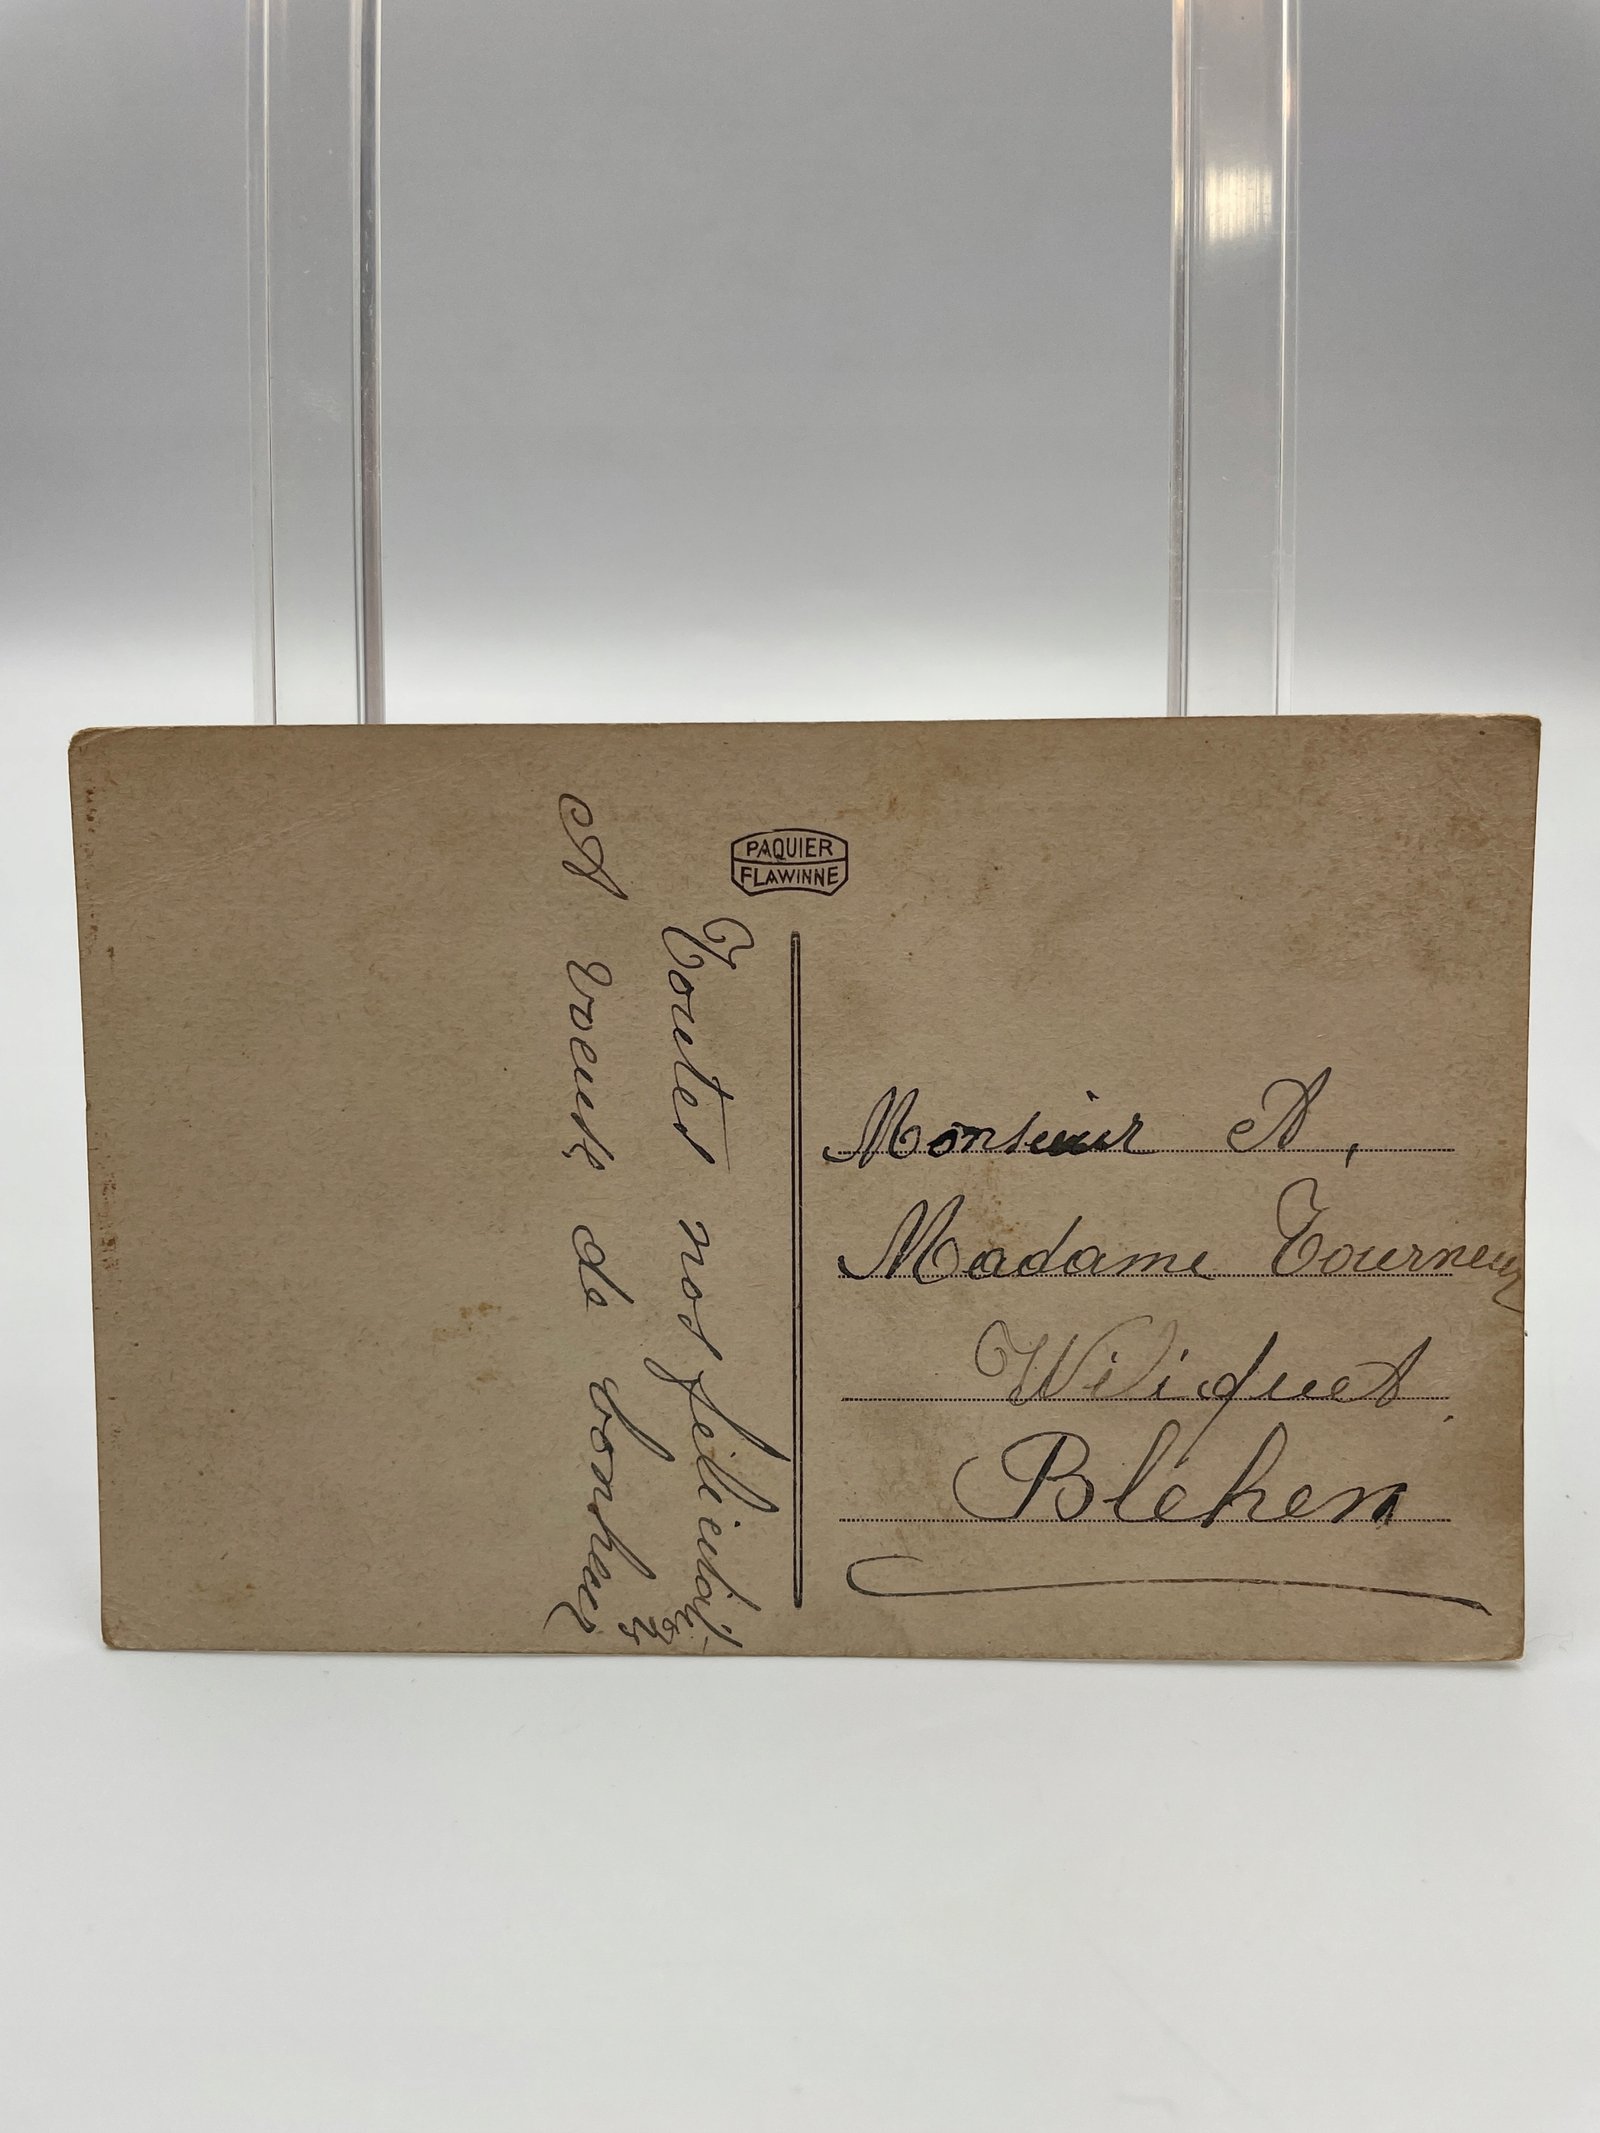 PAQUIER
FLAWINNE
Toutes nos félicit
A voeux de bonheur
Monsieur A,
Madame Tourneur
Wiliquet
Bléhen